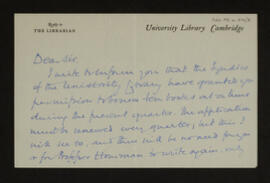 Reply to
THE LIBRARIAN
University Library Cambridge
Dear Sir,
I write to inform you that the Syndics
of the University Library have granted you
permission to borrow ten books at one time
during the present quarter. The application
must be renewed every quarter, but this I
will see to, and there will be no need for you
or for Housman to write again. only